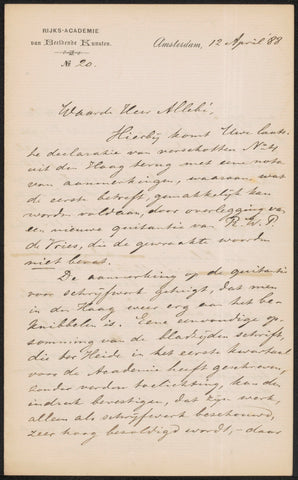 RIJKS-ACADEMIE
van Beeldende Kunsten.
№ 20.
Amsterdam, 12 April 88
Waarde Heer Allebé,
Hierbij komt Uwe laatste
declaratie van verschotten No 4
uit den Haag terug met eene nota
van aanmerkingen, waaraan, wat
de eerste betreft, gemakkelijk kan
worden voldaan, door overlegging van
een nieuwe quitantie van R.W.P.
de Vries, die de gewraakte woorden
niet bevat.
De aanmerking op de quitantie
voor schrijfwerk getuigt, dat men
in den Haag weer erg aan het be
knibbelen is. Eene eenvoudige op-
somming van de bladzijden schrift,
die ter Heide in het eerste kwartaal
voor de Academie heeft geschreven,
zonder verdere toelichting, kan den
indruk bevestigen, dat zijn werk,
alleen als schrijfwerk beschouwd,
zeer hoog bezoldigd wordt, - daar